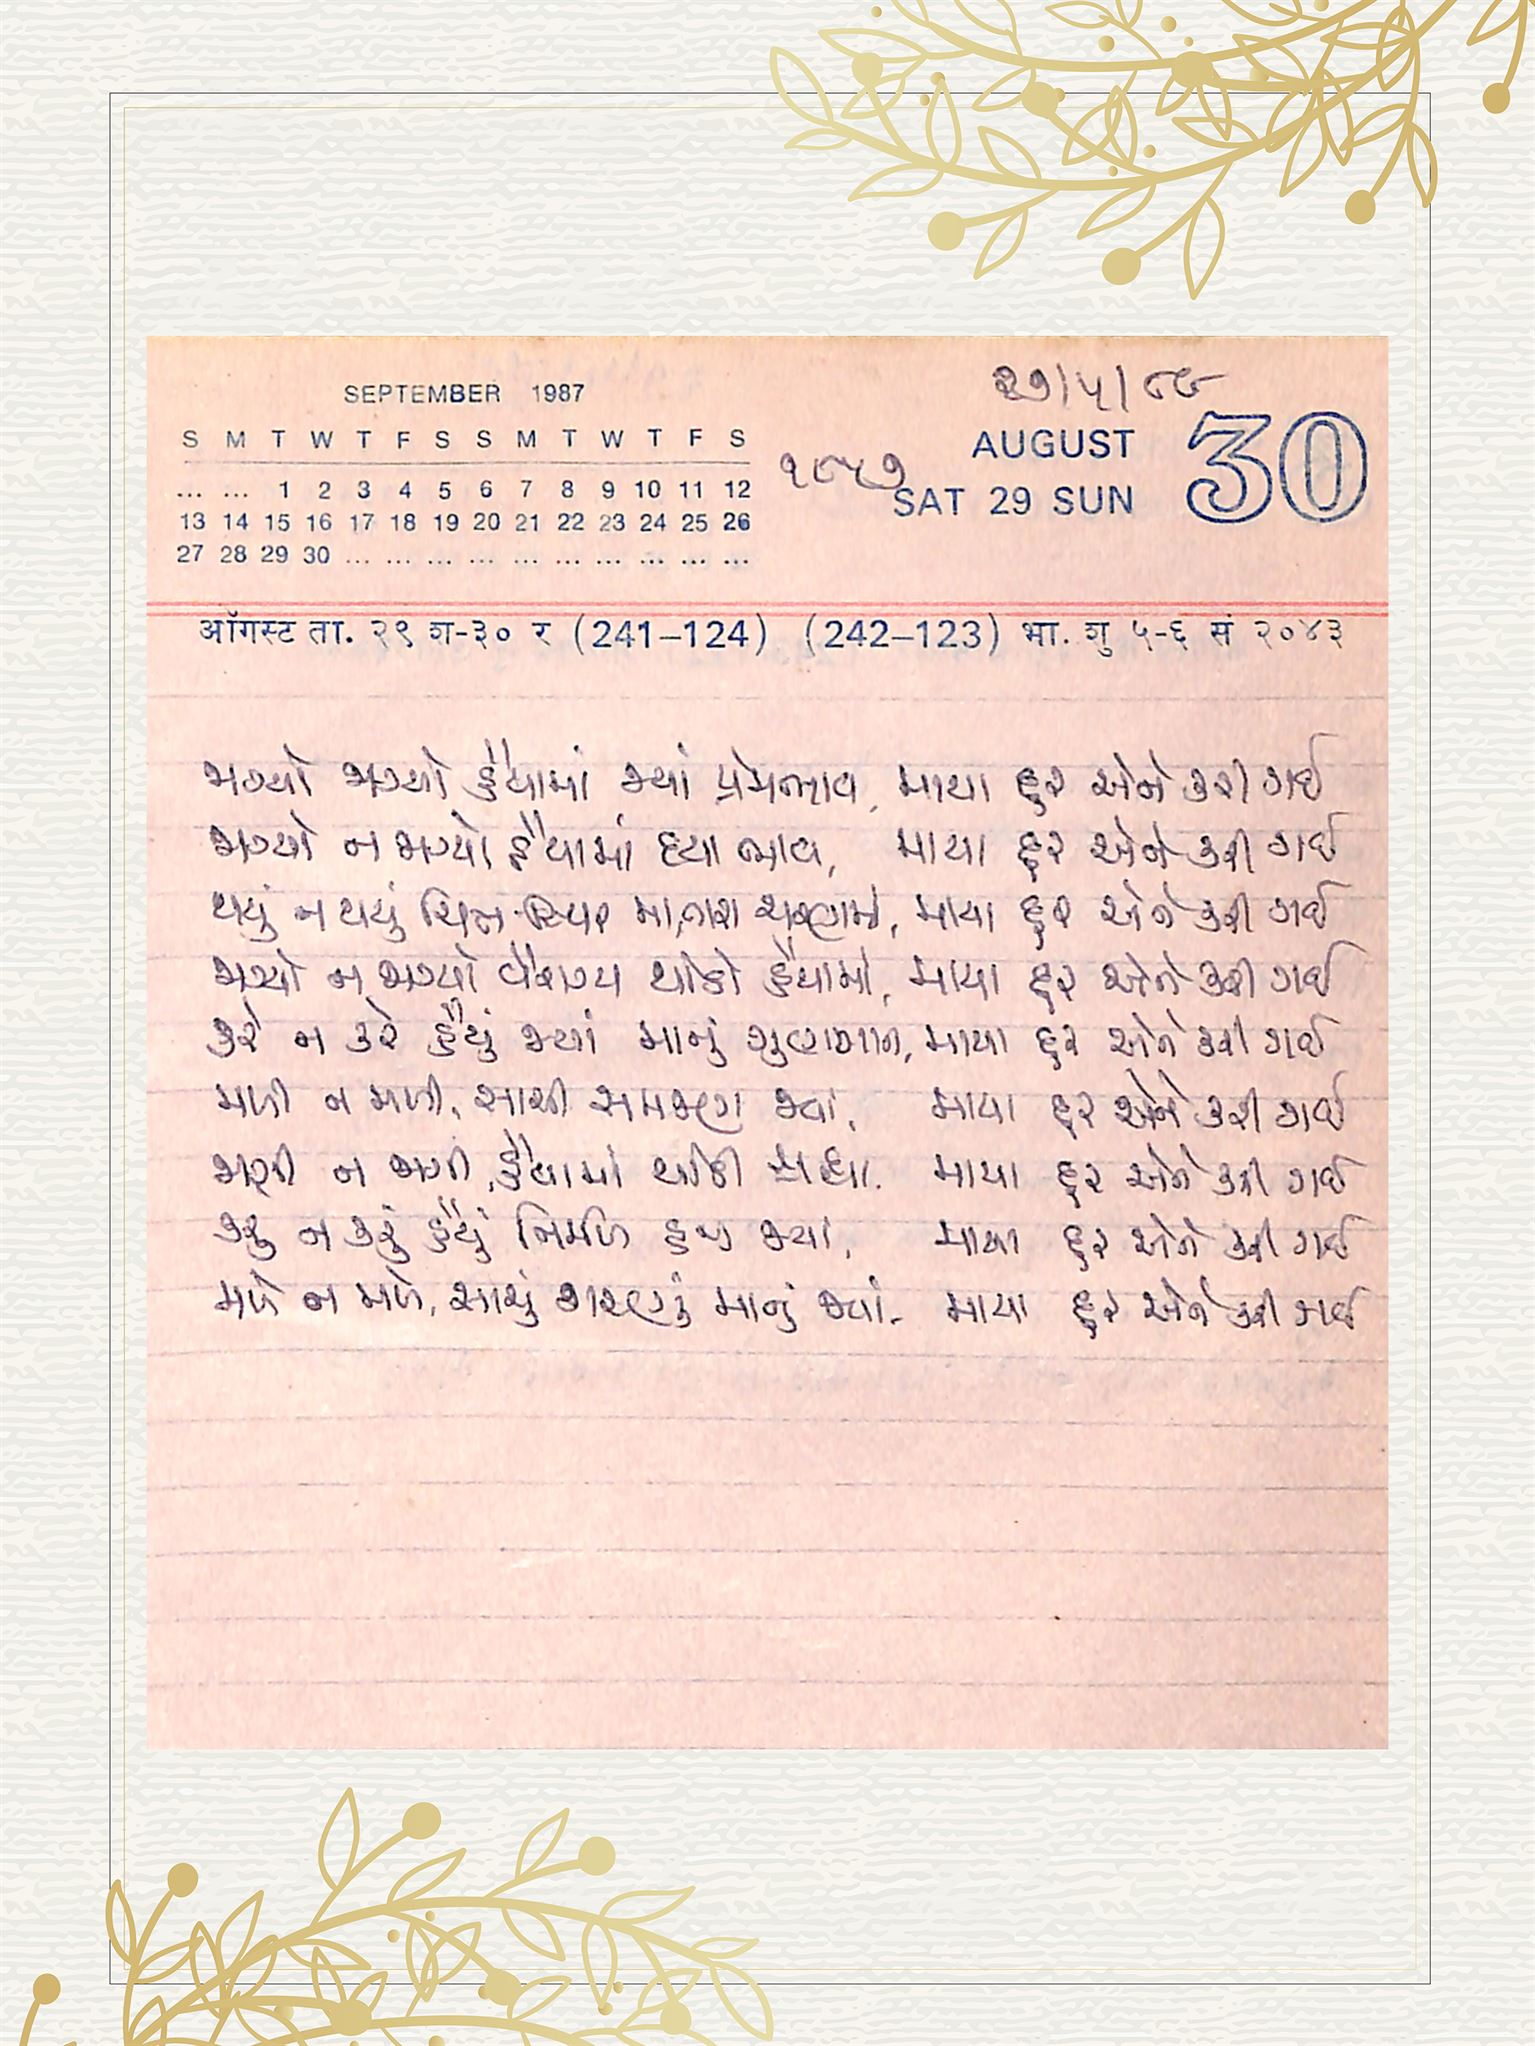 ૨૭/૫/૮૯
SEPTEMBER 1987
AUGUST 30
S M T W T F S S M T W T F S
૧૮૫૭
SAT 29 SUN
... ... 1 2 3 4 5 6 7 8 9 10 11 12
13 14 15 16 17 18 19 20 21 22 23 24 25 26
27 28 29 30 ... ... ... ... ... ... ... ... ... ...
ऑगस्ट ता. २९ श-३० र (241–124) (242–123) भा. शु ५-६ सं २०४३
જાગ્યો જાગ્યો હૈયામાં જ્યાં પ્રેમભાવ, માયા દુર એને કરી ગઈ
જાગ્યો ન જાગ્યો હૈયામાં દયા ભાવ, માયા દુર એને કરી ગઈ
થયું ન થયું ચિત્ત સ્થિર માતારા ચરણમાં, માયા દુર એને કરી ગઈ
જાગ્યો ન જાગ્યો વૈરાગ્ય થોડો હૈયામાં, માયા દુર એને કરી ગઈ
કરે ન કરે હૈયું જ્યાં માનું ગુણગાન, માયા દુર એને કરી ગઈ
મળી ન મળી, સાચી સમજણ જ્યાં, માયા દુર એને કરી ગઈ
જાગી ન જાગી, હૈયામાં થોડી શ્રદ્ધા. માયા દુર એને કરી ગઈ
કર્યું ન કર્યું હૈયું નિર્મળ હજી જ્યાં, માયા દુર એને કરી ગઈ
મળે ન મળે, સાચું શરણું માનું જ્યાં. માયા દુર એને કરી ગઈ